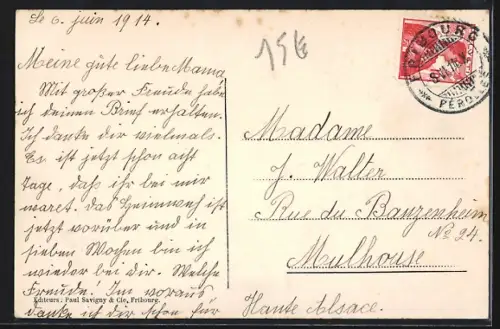 Le 6. juin 1914.
Meine gute liebe Mama
Mit großer Freude habe
ich deinen Brief erhalten.
Ich danke dir vielmals.
Es ist jetzt schon acht
Tage, daß ihr bei mir
waret. das Heimweh ist
jetzt vorüber und in
sieben Wochen bin ich
wieder bei dir. Welche
Freude! Im voraus
danke ich dir schon für
Editeurs: Paul Savigny & Cie, Fribourg.
15
FRIBOURG
PÉROLLES
Madame
J. Walter
Rue du Banzenheim
No 24.
Mulhouse.
Haute Alsace.